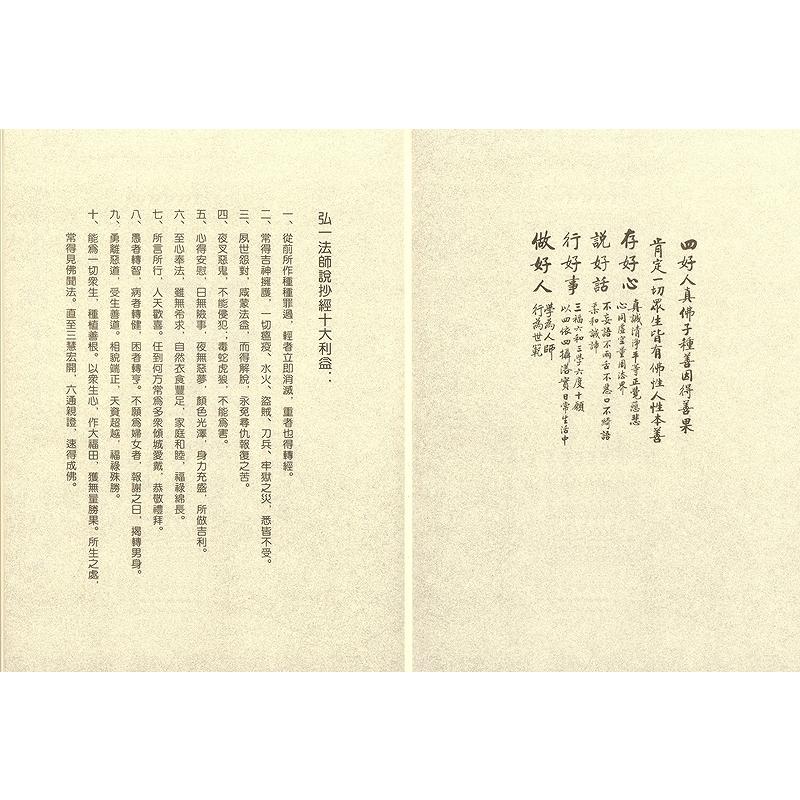 四好人真佛子種善因得善果
肯定一切眾生皆有佛性人性本善
存好心
真誠清淨平等正覺慈悲
心同虛空量周法界
說好話
不妄語不兩舌不惡口不綺語
柔和誠諦
行好事
三福六和三學六度十願
以四依四攝落實日常生活中
做好人
學為人師
行為世範
弘一法師說抄經十大利益：
一、從前所作種種罪過，輕者立即消滅，重者也得轉輕。
二、常得吉神擁護，一切瘟疫、水火、盜賊、刀兵、牢獄之災，悉皆不受。
三、夙世怨對，咸蒙法益，而得解脫，永免尋仇報復之苦。
四、夜叉惡鬼，不能侵犯；毒蛇虎狼，不能為害。
五、心得安慰，日無險事，夜無惡夢，顏色光澤，身力充盛，所做吉利。
六、至心奉法，雖無希求，自然衣食豐足，家庭和睦，福祿綿長。
七、所言所行，人天歡喜。任到何方常為多眾傾城愛戴，恭敬禮拜。
八、愚者轉智，病者轉健，困者轉亨。不願為婦女者，報謝之日，揭轉男身。
九、勇離惡道，受生善道。相貌端正，天資超越，福祿殊勝。
十、能為一切眾生，種植善根。以眾生心，作大福田，獲無量勝果。所生之處，
常得見佛聞法。直至三慧宏開，六通親證，速得成佛。